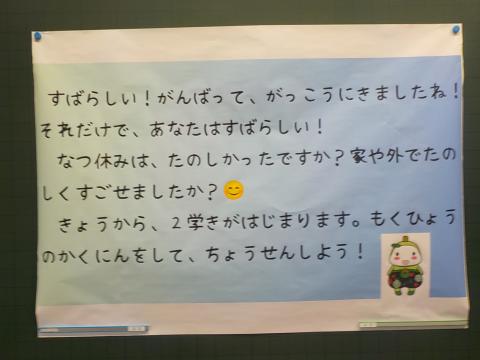 すばらしい！がんばって、がっこうにきましたね！
それだけで、あなたはすばらしい！
なつ休みは、たのしかったですか？家や外でたの
しくすごせましたか？😊
きょうから、２学きがはじまります。もくひょう
のかくにんをして、ちょうせんしよう！